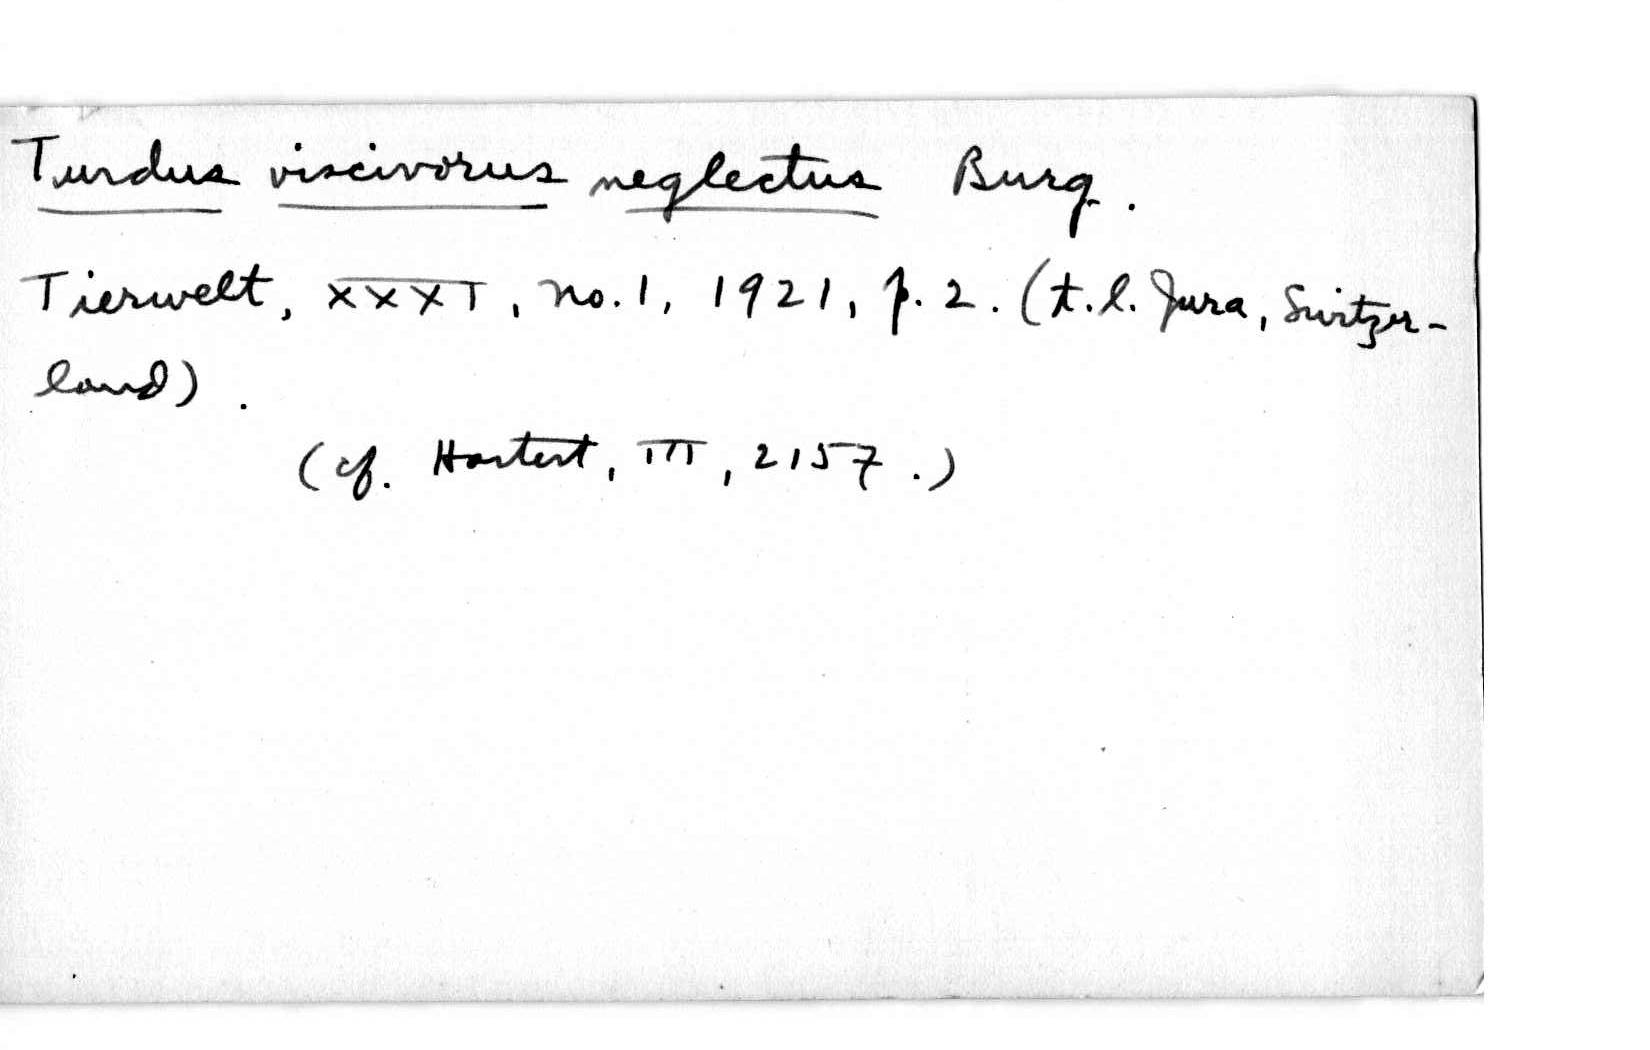 Turdus viscivorus neglectus Burg.
Tierwelt, XXXI, no. 1, 1921, p. 2. (t.l. Jura, Switzer-
land).
(cf. Hartert, III, 2157.)